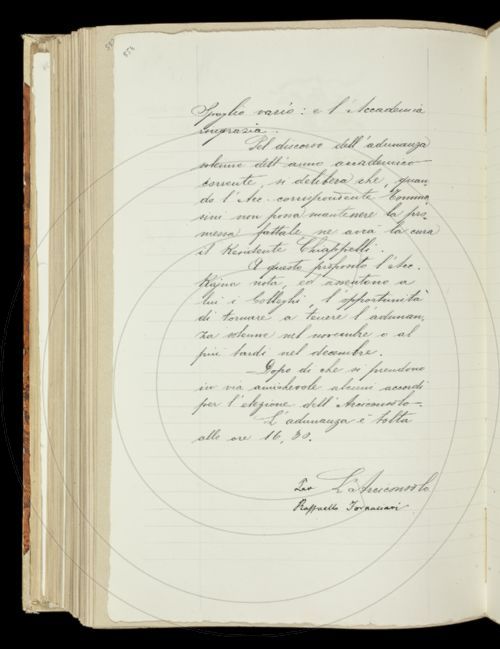 Spoglio vario: e l'Accademia
ringrazia.
Pel discorso dell'adunanza
solenne dell'anno accademico
corrente, si delibera che, quan-
do l'Acc. corrispondente Tomma-
sini non possa mantenere la pro-
messa fattale ne avrà la cura
il Residente Chiappelli.
A questo proposito l'Acc.
Rajna nota, ed assentono a
lui i Colleghi, l'opportunità
di tornare a tenere l'adunan-
za solenne nel novembre o al
più tardi nel decembre.
Dopo di che si prendono
in via amichevole alcuni accordi
per l'elezione dell'Arciconsolo.
L'adunanza è tolta
alle ore 16,30.
L'Arciconsolo
Raffaello Fornaciari